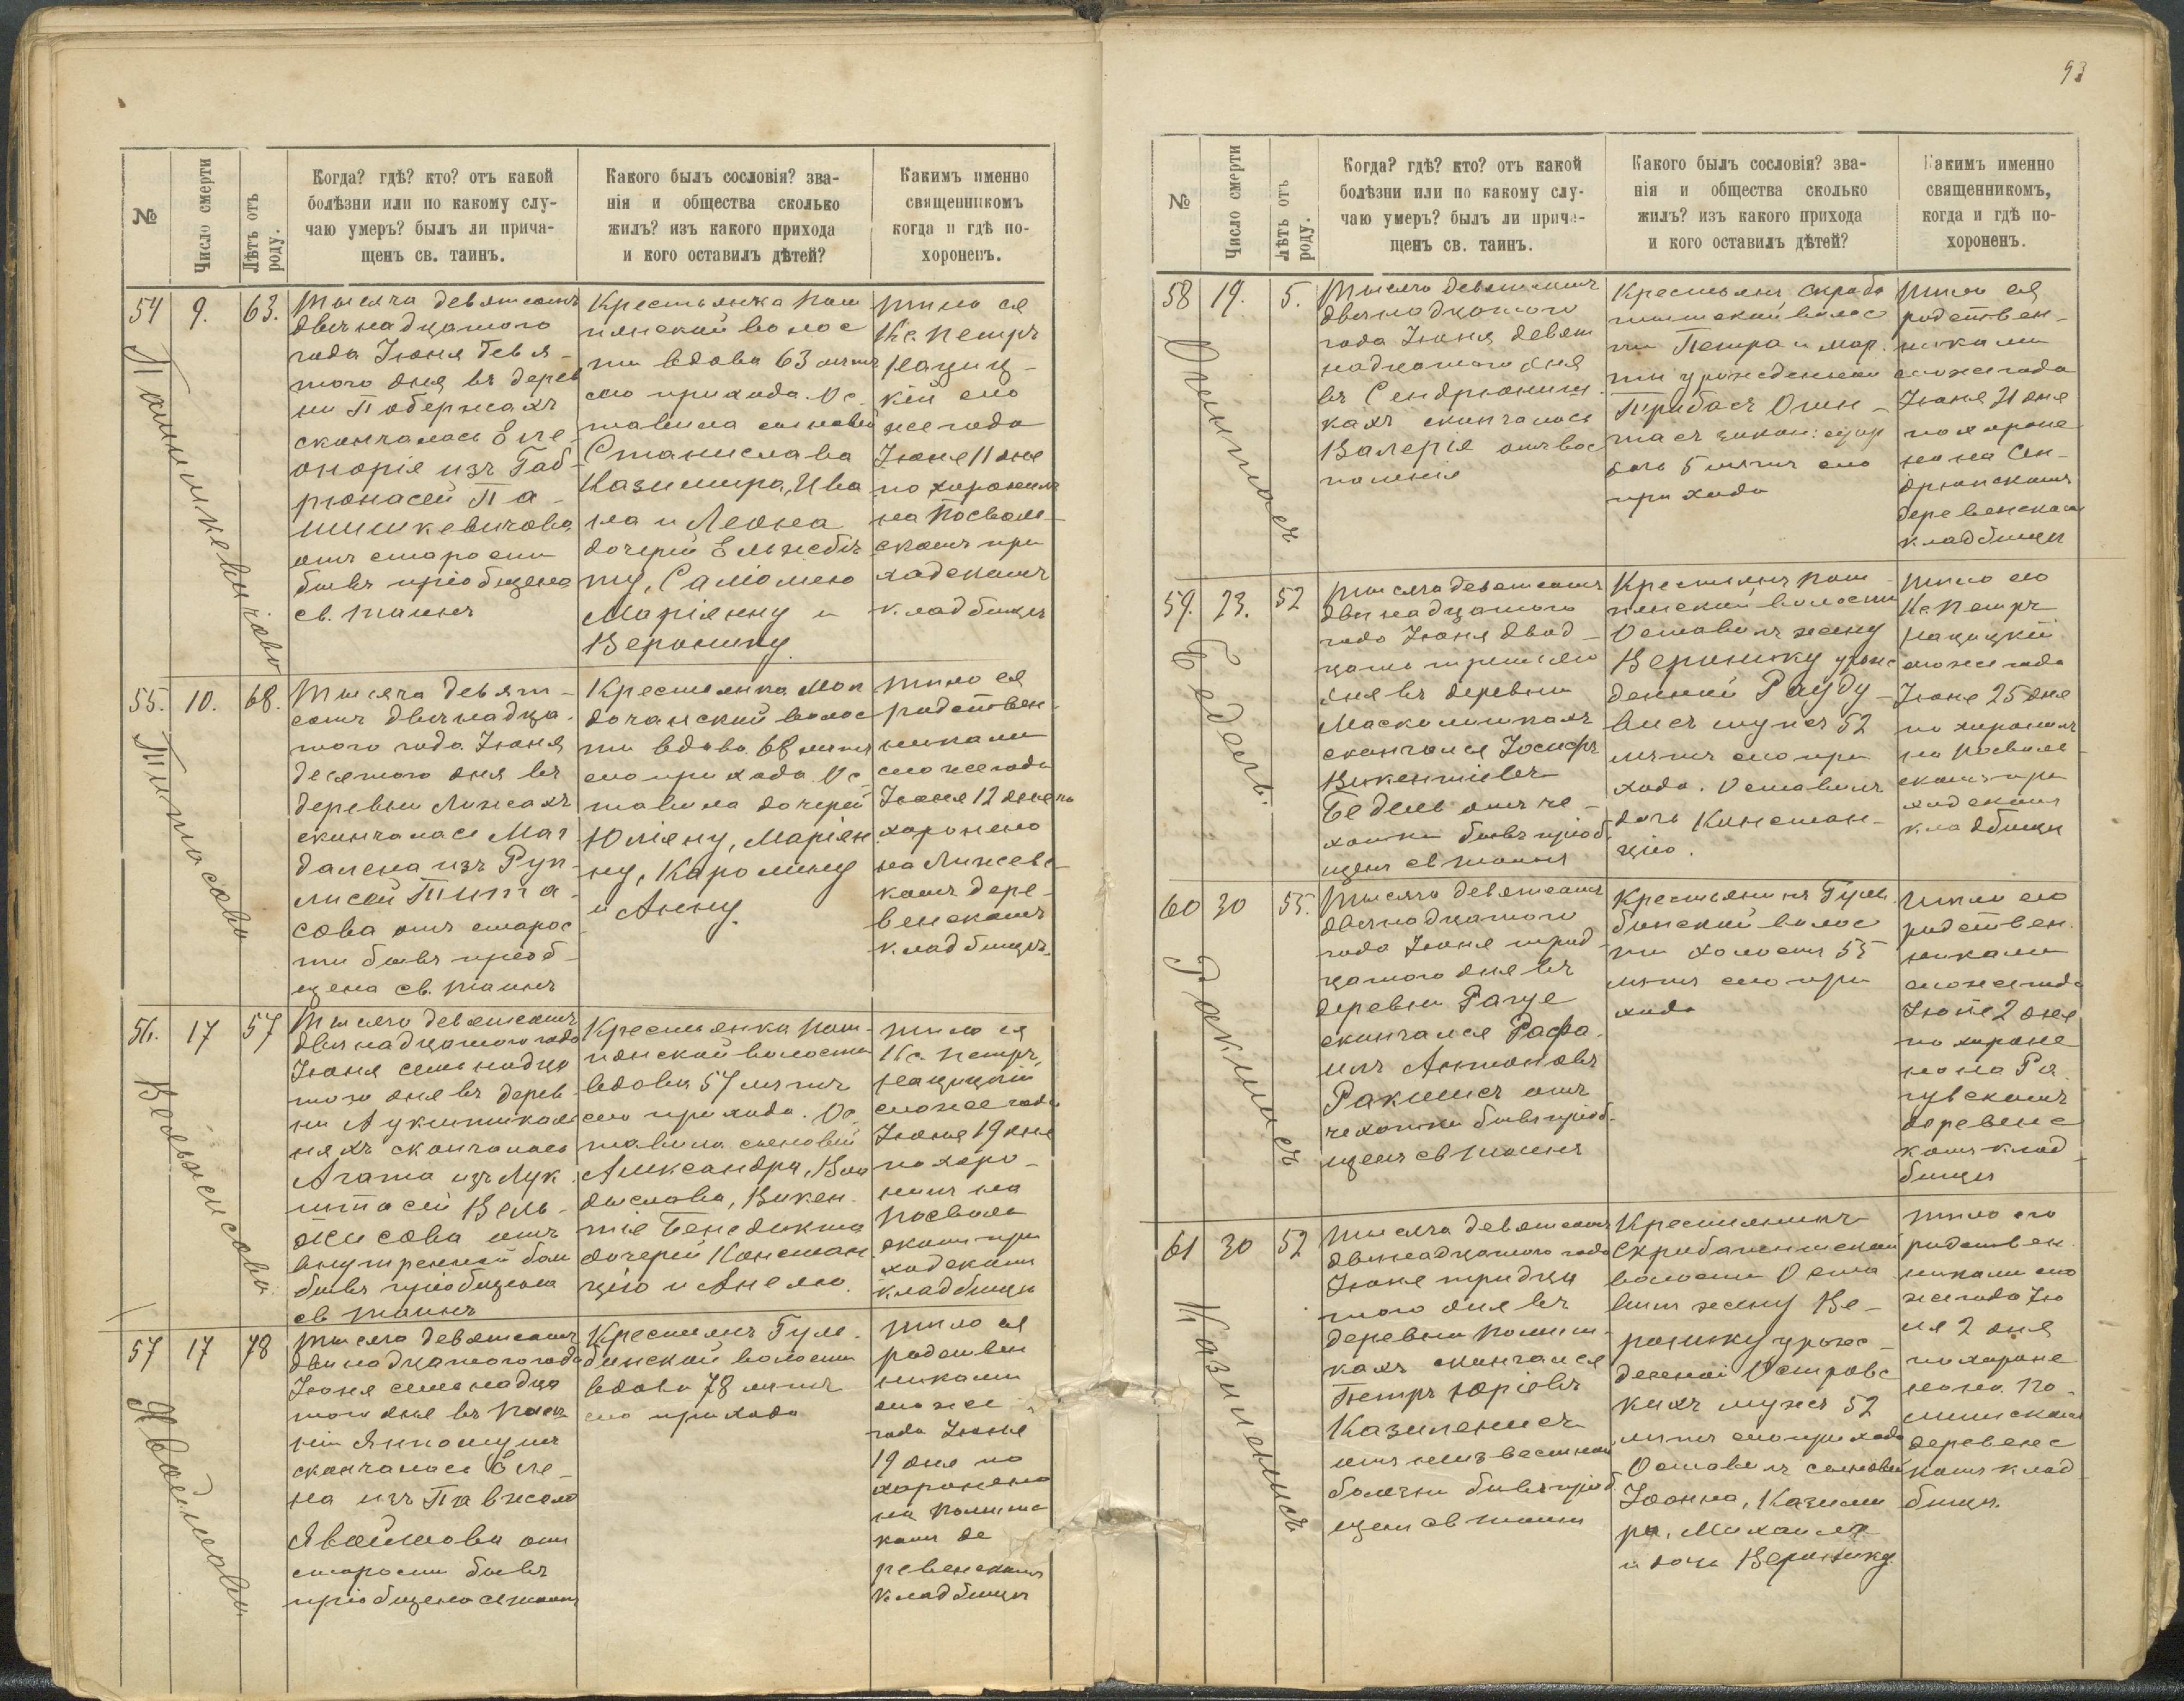 53
№
Число смерти
Лѣтъ отъ роду.
Когда? гдѣ? кто? отъ какой
болѣзни или по какому слу-
чаю умеръ? былъ ли прича-
щенъ св. таинъ.
Какого былъ сословія? зва-
нія и общества сколько
жилъ? изъ какого прихода
и кого оставилъ дѣтей?
Какимъ именно
священникомъ
когда и гдѣ по-
хороненъ.
54
9.
63.
Пашишкевичова
Тысяча девятсотъ
двѣнадцатого
года Іюня девя-
того дня въ дерев
ни Побержахъ
скончалась Еле-
онорія изъ Габ-
рюнасей Па-
шишкевичова
отъ старости
бывъ пріобщена
св. таинъ
Крестьянка
волос
ти вдова 63 лѣтъ
сего прихода. Ос-
тавила сыновей
Станислава
Казимира, Ива
на и Леона
дочерей Ельжбѣ
ту, Саломею
Маріянну и
Веронику.
Тѣло ея
Кс. Петръ
Нациц-
кій сего
же года
Іюня 11 дня
похоронилъ
на Посволь-
скомъ при
ходскомъ
кладбищѣ
55.
10.
68.
Титасова
Тысяча девят-
сотъ двѣнадца-
того года Іюня
десятого дня въ
деревни Лижахъ
скончалась Маг
далена изъ
Тита-
сова отъ старос
ти бывъ пріоб-
щена св. таинъ
Крестьянка
волос
ти вдова 68 лѣтъ
сего прихода. Ос-
тавила дочерей
Юліяну, Маріян
ну, Каролину
и Анну.
Тѣло ея
родствен-
никами
сего же года
Іюня 12 дня по
хоронено
на
комъ дере-
венскомъ
кладбищѣ.
56.
17
57
Вельжисова
Тысяча девятсотъ
двѣнадцатого года
Іюня семнадца
того дня въ дерев-
ни
скончалась
Агата изъ Лук
штасей Вель-
жисова отъ
внутренней бол
бывъ пріобщена
св таинъ
Крестьянка
волости
вдова 57 лѣтъ
сего прихода. Ос-
тавила сыновей
Александра, Вла
дислава, Викен-
тія Бенедикта
дочерей Констан
цію и Анелю.
Тѣло ея
Кс. Петръ
Нацицкій
сего же года
Іюня 19 дня
похоро-
нилъ на
Посволь
скомъ при
ходскомъ
кладбищѣ
57
17
78
Явойшова
Тысяча девятсотъ
двѣнадцатого года
Іюня семнадца
того дня въ
скончалась Еле-
на изъ
Явойшова отъ
старости бывъ
пріобщена св таинъ
Крестьянъ Гуль-
бинской волости
вдова 78 лѣтъ
сего прихода
Тѣло ея
родствен
никами
сего же
года Іюня
19 дня по
хоронено
на
комъ де
ревенскомъ
кладбищѣ
№
Число смерти
Лѣтъ отъ роду.
Когда? гдѣ? кто? отъ какой
болѣзни или по какому слу-
чаю умеръ? былъ ли прича-
щенъ св. таинъ.
Какого былъ сословія? зва-
нія и общества сколько
жилъ? изъ какого прихода
и кого оставилъ дѣтей?
Какимъ именно
священникомъ,
когда и гдѣ по-
хороненъ.
58
19.
5.
Тысяча девятсотъ
двѣнадцатого
года Іюня девят
надцатого дня
въ Сендрюниш-
кахъ скончалась
Валерія отъ вос
паленія
Крестьянъ Скробо
тишской волос
ти Петра и Мар-
ты урожденной
Трибасъ
закон: супр
дочь 5 лѣтъ сего
прихода
Тѣло ея
родствен-
никами
сего же года
Іюня 21 дня
похороне
но на Сен-
дрюнскомъ
деревенскомъ
кладбищѣ
59.
23.
52
Бедель.
Тысяча девятсотъ
двѣнадцатого
года Іюня двад-
цать третьяго
дня въ деревни
Маскалишкахъ
скончался Іосифъ
Викентіевъ
Бедель отъ ча-
хотки бывъ пріоб
щенъ св таинъ
Крестьянъ
волости
Оставилъ жену
Веронику урож
денной Рауду-
висъ мужъ 52
лѣтъ сего при
хода. Оставилъ
дочь Констан-
цію.
Тѣло его
Кс. Петръ
Нацицкій
сего же года
Іюня 25 дня
похоронилъ
на Посволь-
скомъ при
ходскомъ
кладбищѣ
60
30
55.
Ракишсъ
Тысяча девятсотъ
двѣнадцатого
года Іюня трид
цатого дня въ
деревни Рагуе
скончался Рафа-
илъ Антоновъ
Ракишсъ отъ
чахотки бывъ пріоб-
щенъ св таинъ
Крестьянинъ Гуль-
бинской волос
ти холостъ 55
лѣтъ сего при
хода
Тѣло его
родствен
никами
сего же года
Іюле 2 дня
похороне
но на Ра
гувскомъ
деревенс
комъ клад-
бищѣ
61
30
52
Казиленисъ
Тысяча девятсотъ
двѣнадцатого года
Іюня тридца
того дня въ
деревни
скончался
Петръ Юріевъ
Казиленисъ
отъ неизвестной
болезни бывъ пріоб
щенъ св таинъ
Крестьянинъ
волости Оста
вилъ жену Ве-
ронику урож-
денной Островс
кихъ мужъ 52
лѣтъ сего прихода
Оставилъ сыновей
Іоанна, Казими
ра, Михаила
и дочь Веронику
Тѣло его
родствен
никами сего
же года Ію
ля 2 дня
похороне
но на По-
деревенс
комъ клад
бищѣ.